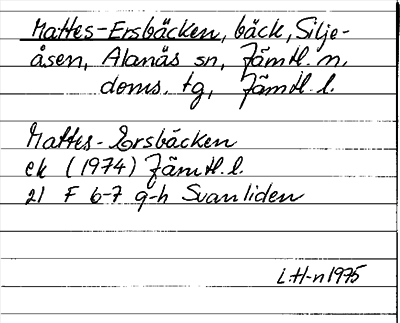 Mattes-Ersbäcken, bäck, Silje-
åsen, Alanäs sn, Jämtl. n.
doms. tg, Jämtl. l.
Mattes-Ersbäcken
ek (1974) Jämtl. l.
21 F 6-7 g-h Svanliden
L.H-n 1975